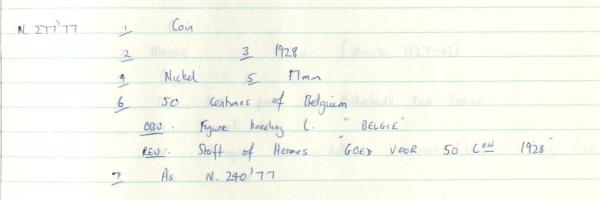 N. 277'77 1 Coin
2 3 1928
4 Nickel 5 17mm
6 50 Centimes of Belgium
OBV. Figure kneeling L. "BELGIE"
REV. Staff of Hermes "GOED VOOR 50 CEN 1928"
7 As N. 240'77